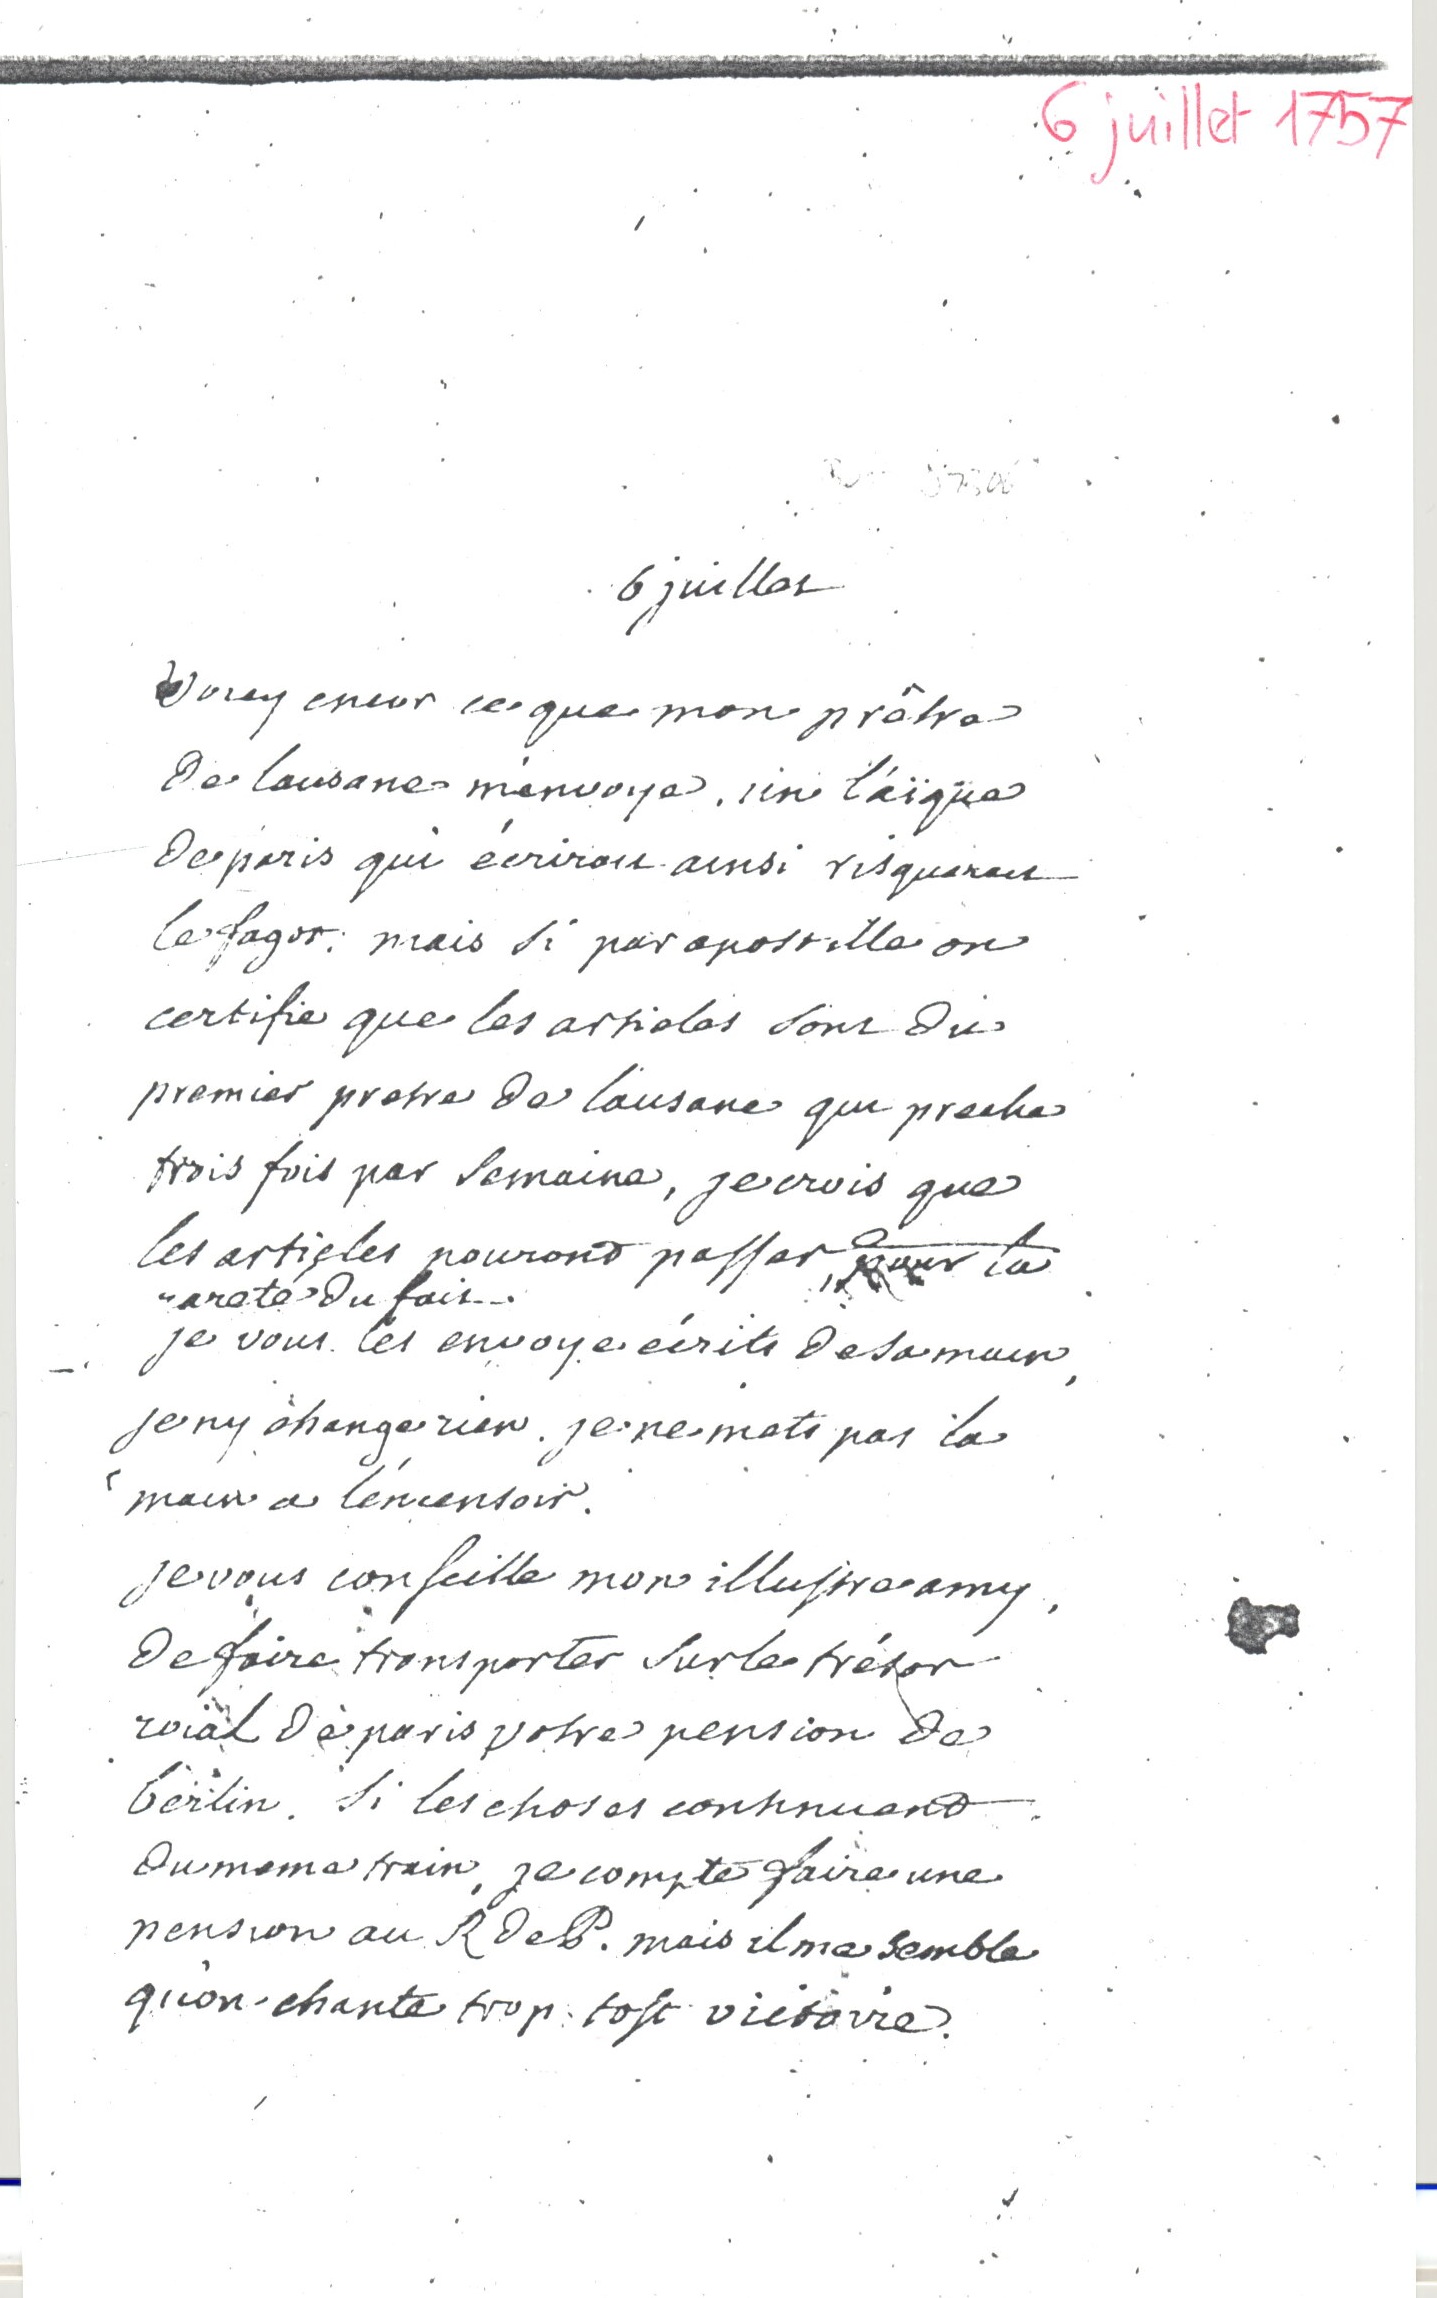 6 juillet 1757
6 juillet
Voicy encor ce que mon prêtre
de lausane m'envoye. un laïque
de paris qui écriroit ainsi risqueroit
le fagot. mais si par apostille on
certifie que les articles sont du
premier pretre de lausane qui preche
trois fois par semaine, je crois que
les articles pouront passer pour la
rareté du fait.
je vous les envoye écrits de sa main,
je ny change rien. je ne mets pas la
main a l'encensoir.
je vous conseille mon illustre amy,
de faire transporter sur le trésor
roial de paris votre pension de
berlin. si les choses continuent
du meme train, je compte faire une
pension au R de P. mais il me semble
qu'on chante trop tost victoire.